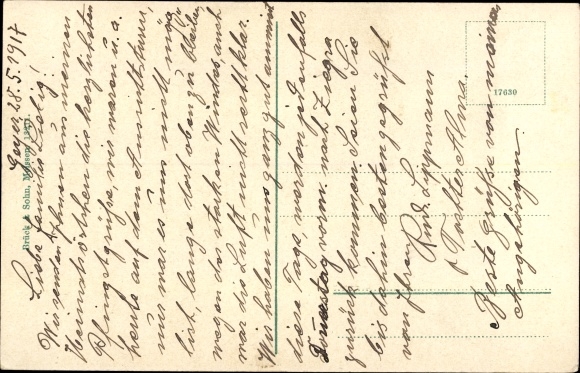 Gera, 28.5.1917
Liebe Familie
Wir senden Ihnen aus meinem
Heimatsörtchen die herzlichsten
Pfingstgrüße, wir waren u. a.
heute auf dem Aussichtsturm,
nur war es uns nicht mög-
lich, lange dort oben zu bleiben
wegen des starken Windes auch
war die Luft nicht recht klar.
Wir haben uns ganz gut
diese Tage, werden jedenfalls
Donnerstag vorm. nach
zurück kommen. Seien Sie
bis dahin bestens gegrüßt
von Ihrem
Rud. Lippmann
u Tochter Alma.
Beste Grüße von meinen
Angehörigen
Brück & Sohn, Meissen
17630